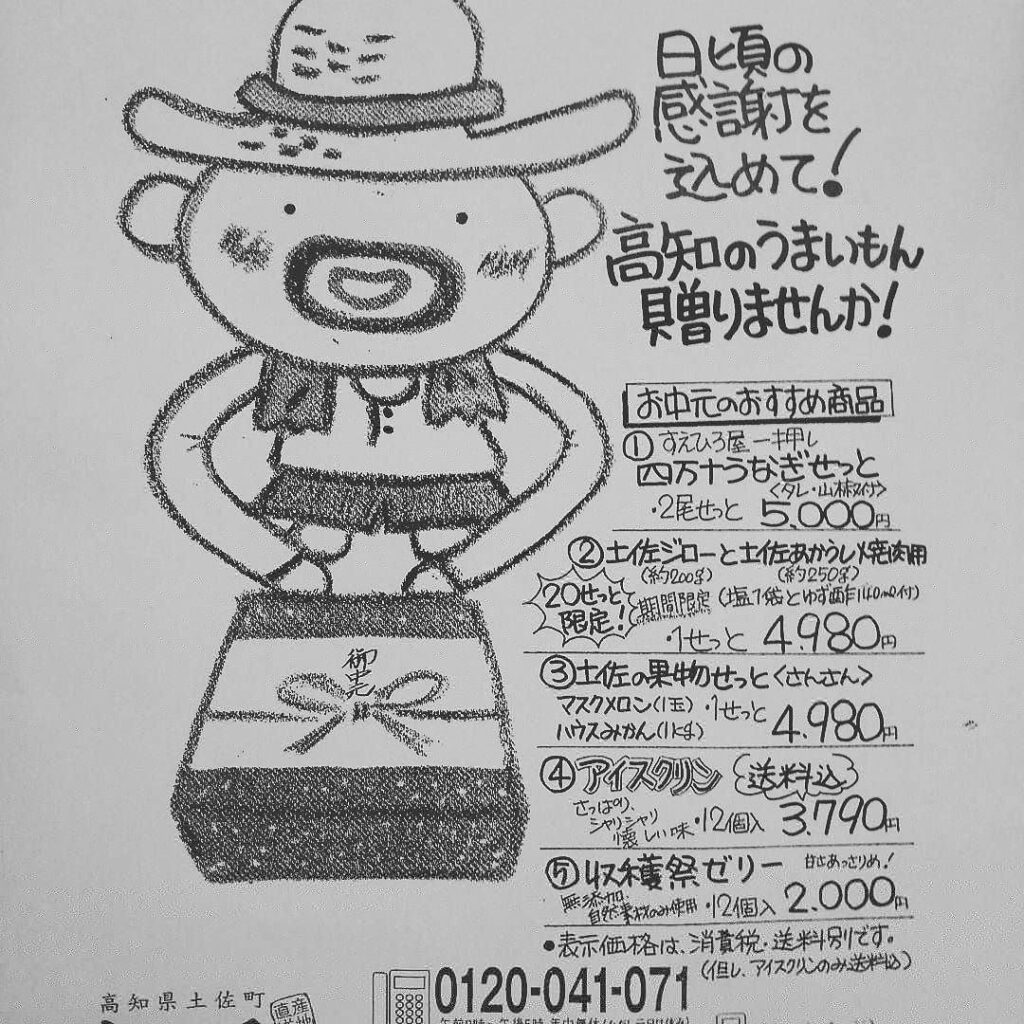 日頃の
感謝を
込めて!
高知のうまいもん
贈りませんか!
お中元のおすすめ商品
① すえひろ屋一押し
四万十うなぎせっと
<タレ・山椒付>
・2尾せっと 5,000円
② 土佐ジローと土佐あかうし焼肉用
(約200g) (約250g)
20せっと
限定!
期間限定 (塩1袋とゆず酢140ml付)
・1せっと 4.980円
③ 土佐の果物せっと<さんさん>
マスクメロン(1玉)
ハウスみかん(1kg)
・1せっと 4.980円
④ アイスクリン 送料込
さっぱり、
シャリシャリ
懐しい味
・12個入 3.790円
⑤ 収穫祭ゼリー 甘さあっさりめ!
無添加
自然素材のみ使用
・12個入 2.000円
●表示価格は、消費税・送料別です。
(但し、アイスクリンのみ送料込)
御中元
高知県土佐町
0120-041-071